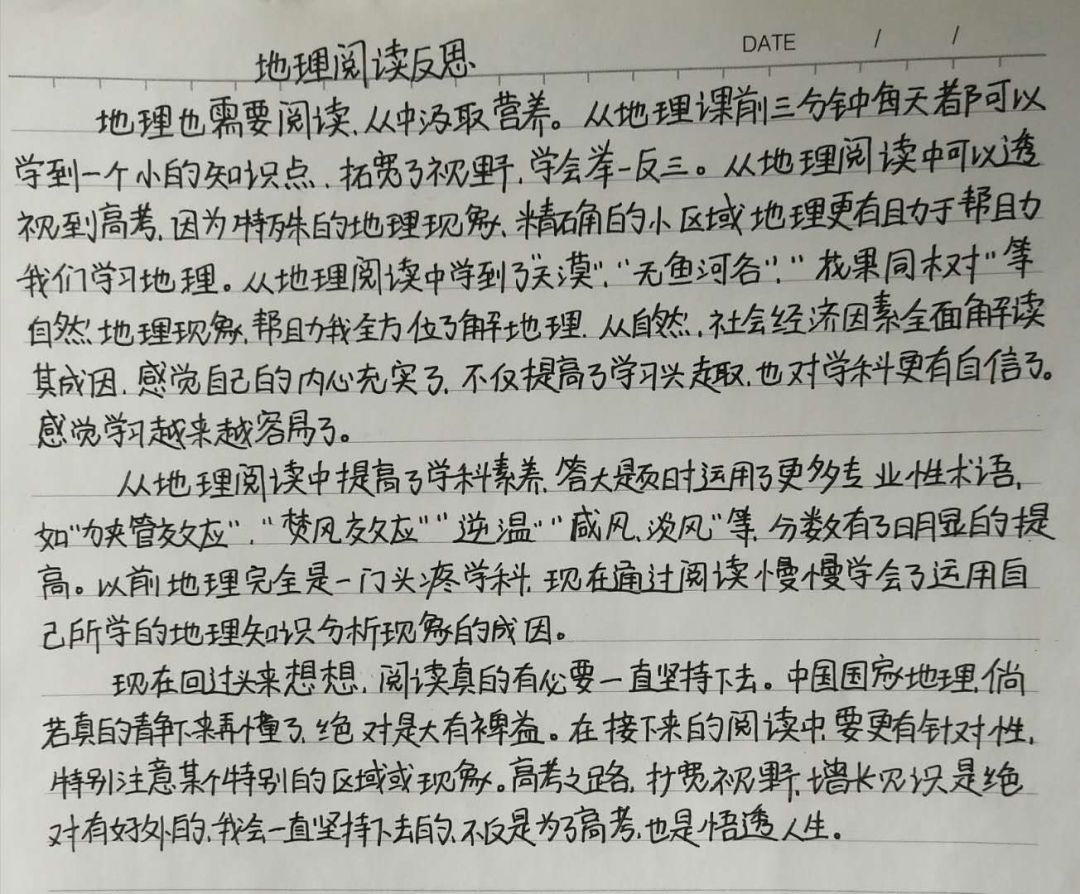 DATE / /
地理阅读反思
地理也需要阅读,从中汲取营养。从地理课前三分钟每天都可以
学到一个小的知识点,拓宽了视野,学会举一反三。从地理阅读中可以透
视到高考,因为特殊的地理现象、精确的小区域地理更有助于帮助
我们学习地理。从地理阅读中学到了"天漠","无鱼河谷","戏果同树"等
自然地理现象,帮助我全方位了解地理,从自然,社会经济因素全面解读
其成因,感觉自己的内心充实了,不仅提高了学习兴趣,也对学科更有自信了。
感觉学习越来越容易了。
从地理阅读中提高了学科素养,答大题时运用了更多专业性术语,
如"狭管效应","焚风效应""逆温""咸风、淡风"等,分数有了明显的提
高。以前地理完全是一门头疼学科,现在通过阅读慢慢学会了运用自
己所学的地理知识分析现象的成因。
现在回过头来想想,阅读真的有必要一直坚持下去。中国国家地理,倘
若真的静下来再懂了,绝对是大有裨益。在接下来的阅读中,要更有针对性,
特别注意某个特别的区域或现象。高考之路,扩宽视野,增长见识是绝
对有好处的,我会一直坚持下去的,不仅是为了高考,也是悟透人生。